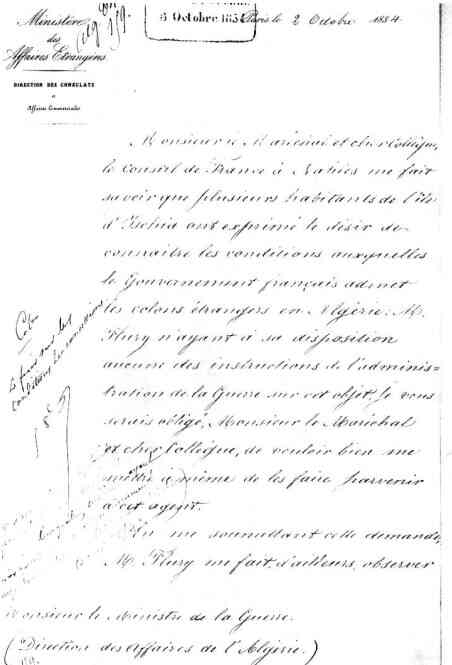 Ministère
des
Affaires Etrangères
DIRECTION DES CONSULATS
&
Affaires Commerciales
6 Octobre 1854
Paris le 2 Octobre 1854
Monsieur le Maréchal et cher Collègue,
le Consul de France à Naples me fait
savoir que plusieurs habitants de l'île
d'Ischia ont exprimé le désir de
connaître les conditions auxquelles
le Gouvernement français admet
les colons étrangers en Algérie. M.
Flury n'ayant à sa disposition
aucune des instructions de l'adminis=
tration de la Guerre sur cet objet, je vous
serais obligé, Monsieur le Maréchal
et cher Collègue, de vouloir bien me
mettre à même de les faire parvenir
à cet agent.
En me soumettant cette demande,
M. Flury me fait, d'ailleurs, observer
Monsieur le Ministre de la Guerre.
(Direction des Affaires de l'Algérie.)